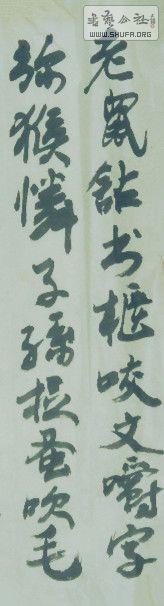 书艺公社
WWW.SHUFA.ORG
老鼠鉆书柜咬文嚼字
弥猴憐子孫捉蚤吹毛